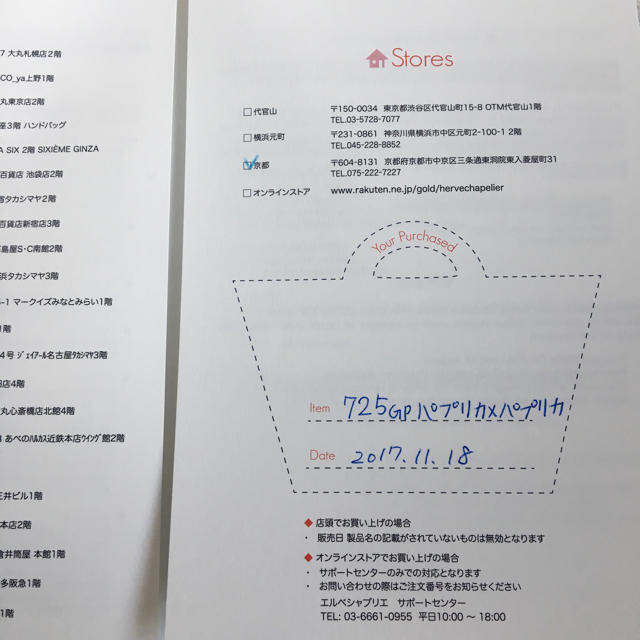 7 大丸札幌店2階
CO_ya上野1階
丸東京店2階
座3階 ハンドバッグ
A SIX 2階 SIXIÈME GINZA
百貨店 池袋店2階
宿タカシマヤ2階
百貨店新宿店3階
島屋S・C南館2階
浜タカシマヤ3階
-1 マークイズみなとみらい1階
1階
4号 ジェイアール名古屋タカシマヤ3階
店4階
丸心斎橋店北館4階
あべのハルカス近鉄本店ウイング館2階
三井ビル1階
本店2階
倉井筒屋 本館1階
多阪急1階
1階
Stores
代官山 〒150-0034 東京都渋谷区代官山町15-8 OTM代官山1階
TEL.03-5728-7077
横浜元町 〒231-0861 神奈川県横浜市中区元町2-100-1 2階
TEL.045-228-8852
京都 〒604-8131 京都府京都市中京区三条通東洞院東入菱屋町31
TEL.075-222-7227
オンラインストア www.rakuten.ne.jp/gold/hervechapelier
Your Purchased
Item 725GP パプリカ×パプリカ
Date 2017.11.18
◆ 店頭でお買い上げの場合
・ 販売日 製品名の記載がされていないものは無効となります
◆ オンラインストアでお買い上げの場合
・ サポートセンターのみでの対応となります
・ お問い合わせの際はご注文番号をお知らせください
エルベシャプリエ サポートセンター
TEL: 03-6661-0955 平日10:00 〜 18:00